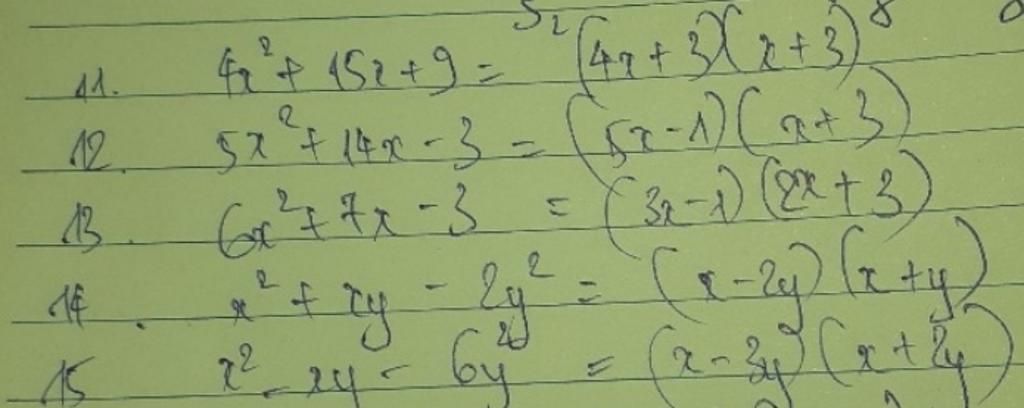 11. 4x² + 15x + 9 = (4x + 3)(x + 3)
12. 5x² + 14x - 3 = (5x - 1)(x + 3)
13. 6x² + 7x - 3 = (3x - 1)(2x + 3)
14. x² + xy - 2y² = (x - 2y)(x + y)
15 x² - xy - 6y² = (x - 3y)(x + 2y)